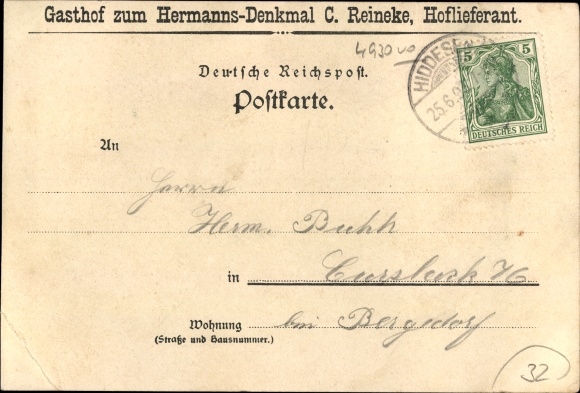 Gasthof zum Hermanns-Denkmal C. Reineke, Hoflieferant.
49300
HIDDESEN
25.6.
5 5
DEUTSCHES REICH
Deutsche Reichspost.
Postkarte.
An
Herrn
Herm. Buhk
in Curslack
Wohnung bei Bergedorf
(Straße und Hausnummer.)
32